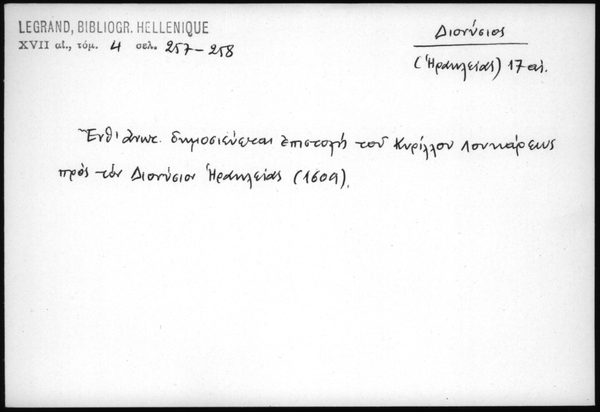 LEGRAND, BIBLIOGR. HELLENIQUE
XVII αἰ., τόμ. 4 σελ. 257-258
Διονύσιος
(Ἡρακλείας) 17 αἰ.
Ἔνθ' ἀνωτ. δημοσιεύεται ἐπιστολή τοῦ Κυρίλλου Λουκάρεως
πρὸς τὸν Διονύσιον Ἡρακλείας (1609).